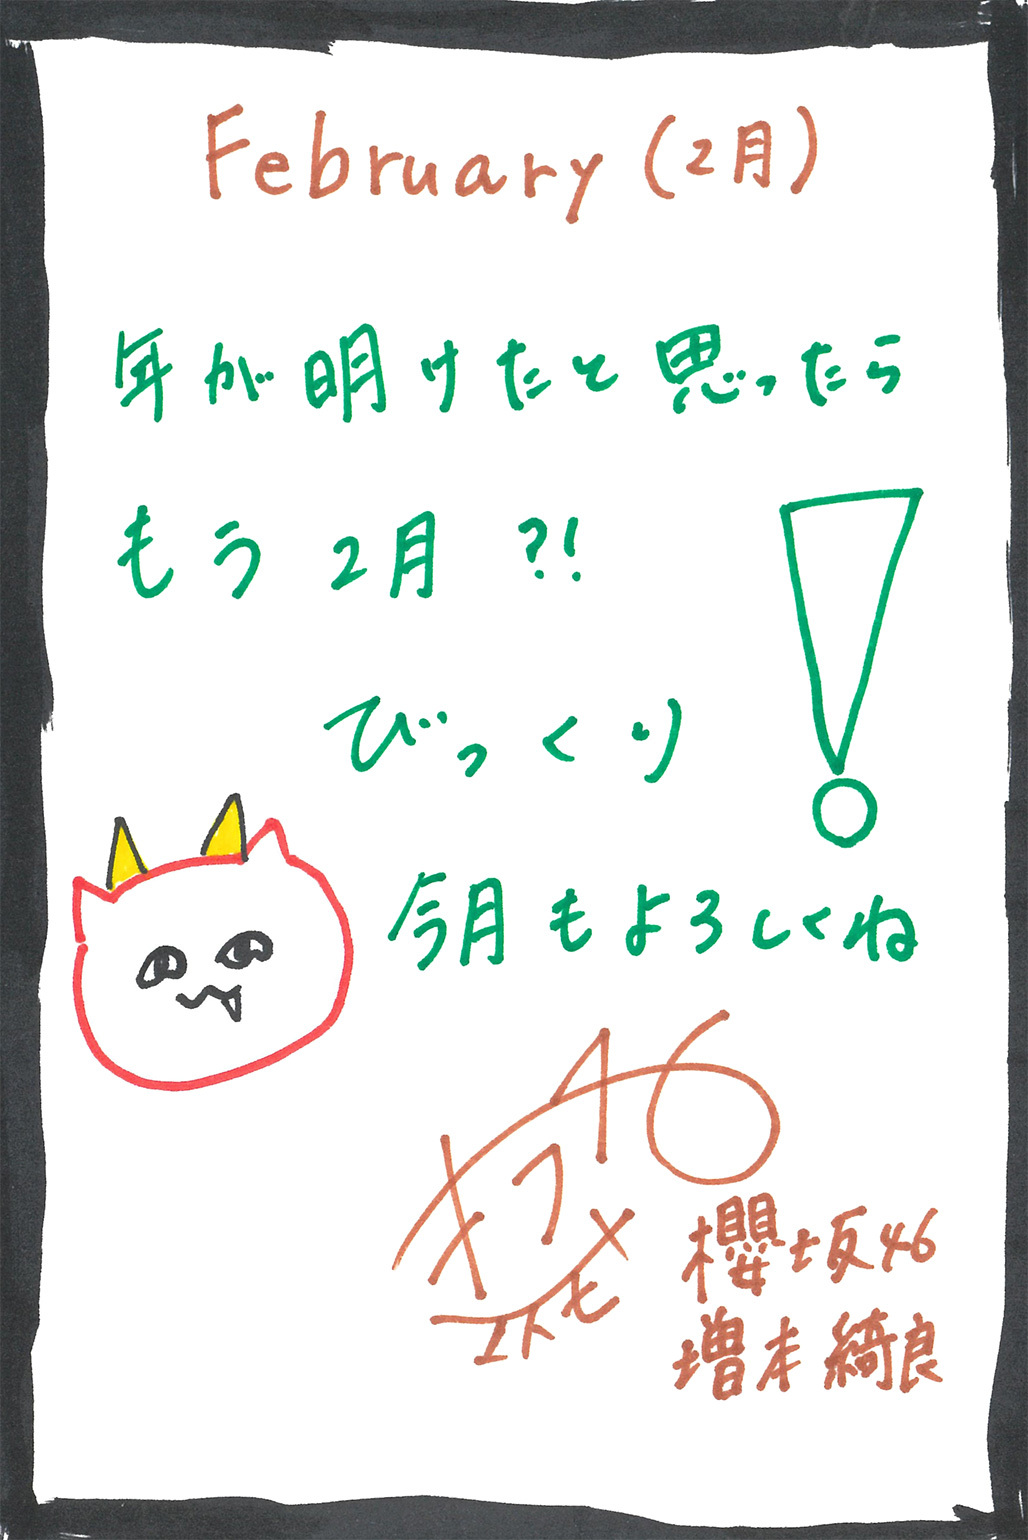 February (2月)
年が明けたと思ったら
もう2月?!
びっくり!
今月もよろしくね
46
櫻坂46
増本綺良